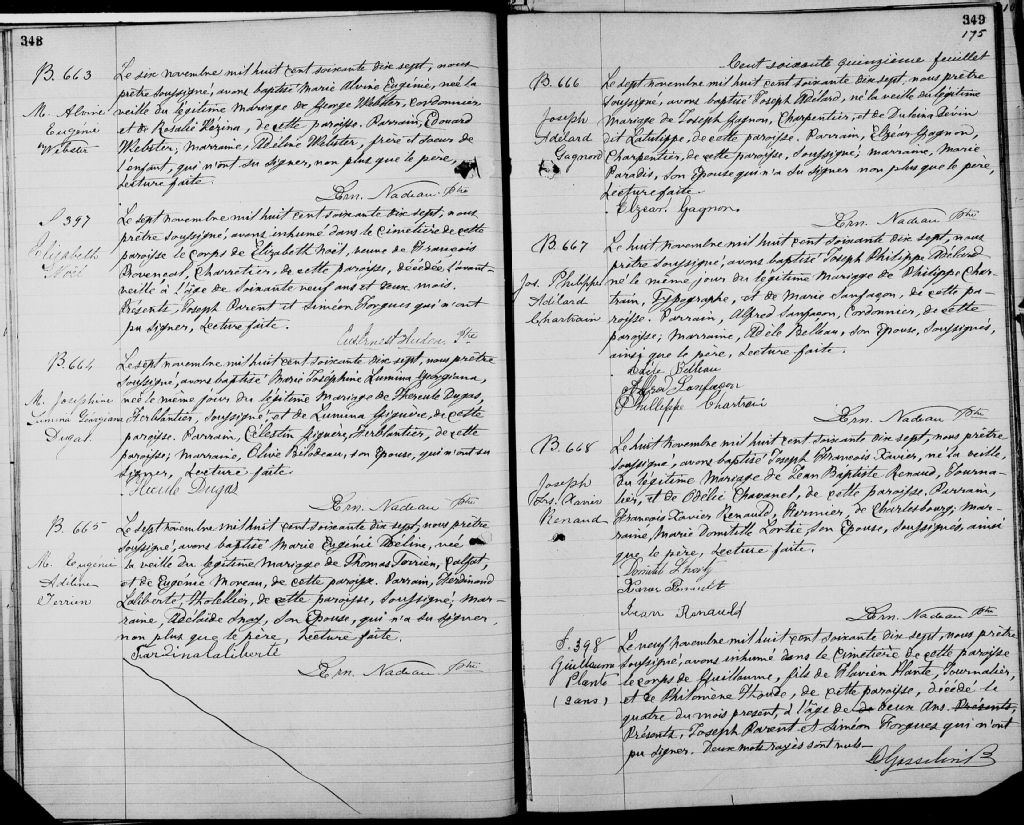 348
B. 663
M. Alvine
Eugénie
Webster
Le six novembre mil huit cent soixante dix sept, nous
prêtre soussigné, avons baptisé Marie Alvine Eugénie, née la
veille du légitime mariage de George Webster, Cordonnier
et de Rosalie Vézina, de cette paroisse. Parrain, Edouard
Webster, marraine, Adeline Webster, frère et soeur de
l'enfant, qui n'ont su signer, non plus que le père,
Lecture faite.
Ern. Nadeau Ptre
S 397
Elizabeth
Noël
Le sept novembre mil huit cent soixante dix sept, nous
prêtre soussigné, avons inhumé dans le cimetière de cette
paroisse le corps de Elizabeth Noël, veuve de François
Provencal, Charretier, de cette paroisse, décédée l'avant-
veille à l'âge de soixante neuf ans et deux mois.
Présents, Joseph Parent et Siméon Forgues qui n'ont
pu signer, Lecture faite.
Ptre
B. 664
M. Josephine
Lumina Géorgiana
Dugal
Le sept novembre mil huit cent soixante dix sept, nous prêtre
soussigné, avons baptisé Marie Joséphine Lumina Georgiana,
née le même jour du légitime mariage de Thercule Dugas,
Ferblantier, soussigné et de Lumina Giguère, de cette
paroisse. Parrain, Célestin Giguère, Ferblantier, de cette
paroisse, marraine, Olive Bilodeau, son épouse, qui n'ont su
signer, Lecture faite.
Dugas
Ern. Nadeau Ptre
B. 665
M. Eugénie
Adeline
Terrien
Le sept novembre mil huit cent soixante dix sept, nous prêtre
soussigné, avons baptisé Marie Eugénie Adéline, née
la veille du légitime mariage de Thomas Terrien, Calfat,
et de Eugénie Moreau, de cette paroisse. Parrain, Ferdinand
Laliberté, Hotellier, de cette paroisse, soussigné, mar-
raine, Adélaïde son épouse, qui n'a su signer,
non plus que le père, Lecture faite.
Fardinalaliberté
Ern. Nadeau Ptre
349
175
Cent soixante quinzième feuillet
B. 666
Joseph
Adélard
Gagnon
Le sept novembre mil huit cent soixante dix sept, nous prêtre
soussigné, avons baptisé Joseph Adélard, né la veille du légitime
mariage de Joseph Gagnon, Charpentier, et de
dit Latulippe, de cette paroisse. Parrain, Elzéar Gagnon,
Charpentier, de cette paroisse, soussigné, marraine, Marie
Paradis, son épouse qui n'a su signer non plus que le père,
Lecture faite.
Elzear Gagnon
Ern. Nadeau Ptre
B. 667
Jos. Philippe
Adélard
Chartrain
Le huit novembre mil huit cent soixante dix sept, nous
prêtre soussigné, avons baptisé Joseph Philippe Adélard
né le même jour du légitime mariage de Philippe Char-
train, Typographe, et de Marie Sanfaçon, de cette pa-
roisse. Parrain, Alfred Sanfaçon, Cordonnier, de cette
paroisse, marraine, Adèle Belleau, son épouse, soussignés,
ainsi que le père, Lecture faite.
Belleau
Alfred Sanfaçon
Phillippe Chartrain
Ern. Nadeau Ptre
B. 668
Joseph
Frs. Xavier
Renaud
Le huit novembre mil huit cent soixante dix sept, nous prêtre
soussigné, avons baptisé Joseph François Xavier, né la veille
du légitime mariage de Jean Baptiste Renaud, Journa-
lier, et de Odélie Chavanel, de cette paroisse, Parrain,
François Xavier Renauld, Fermier, de Charlesbourg, mar-
raine, Marie Domitille Lortie, son épouse, soussignés, ainsi
que le père, Lecture faite.
Xavier Renault
Jean Renauld
Ern. Nadeau Ptre
S. 398
Guillaume
Plante
(2 ans)
Le neuf novembre mil huit cent soixante dix sept, nous prêtre
soussigné, avons inhumé dans le cimetière de cette paroisse
le corps de Guillaume, fils de Flavien Plante, Journalier,
et de Philomène Houde, de cette paroisse, décédé le
quatre du mois present, à l'âge de de deux ans. Présents,
Présents, Joseph Parent et Siméon Forgues qui n'ont
pu signer. Deux mots rayés sont nuls—
D Gosselin Ptre